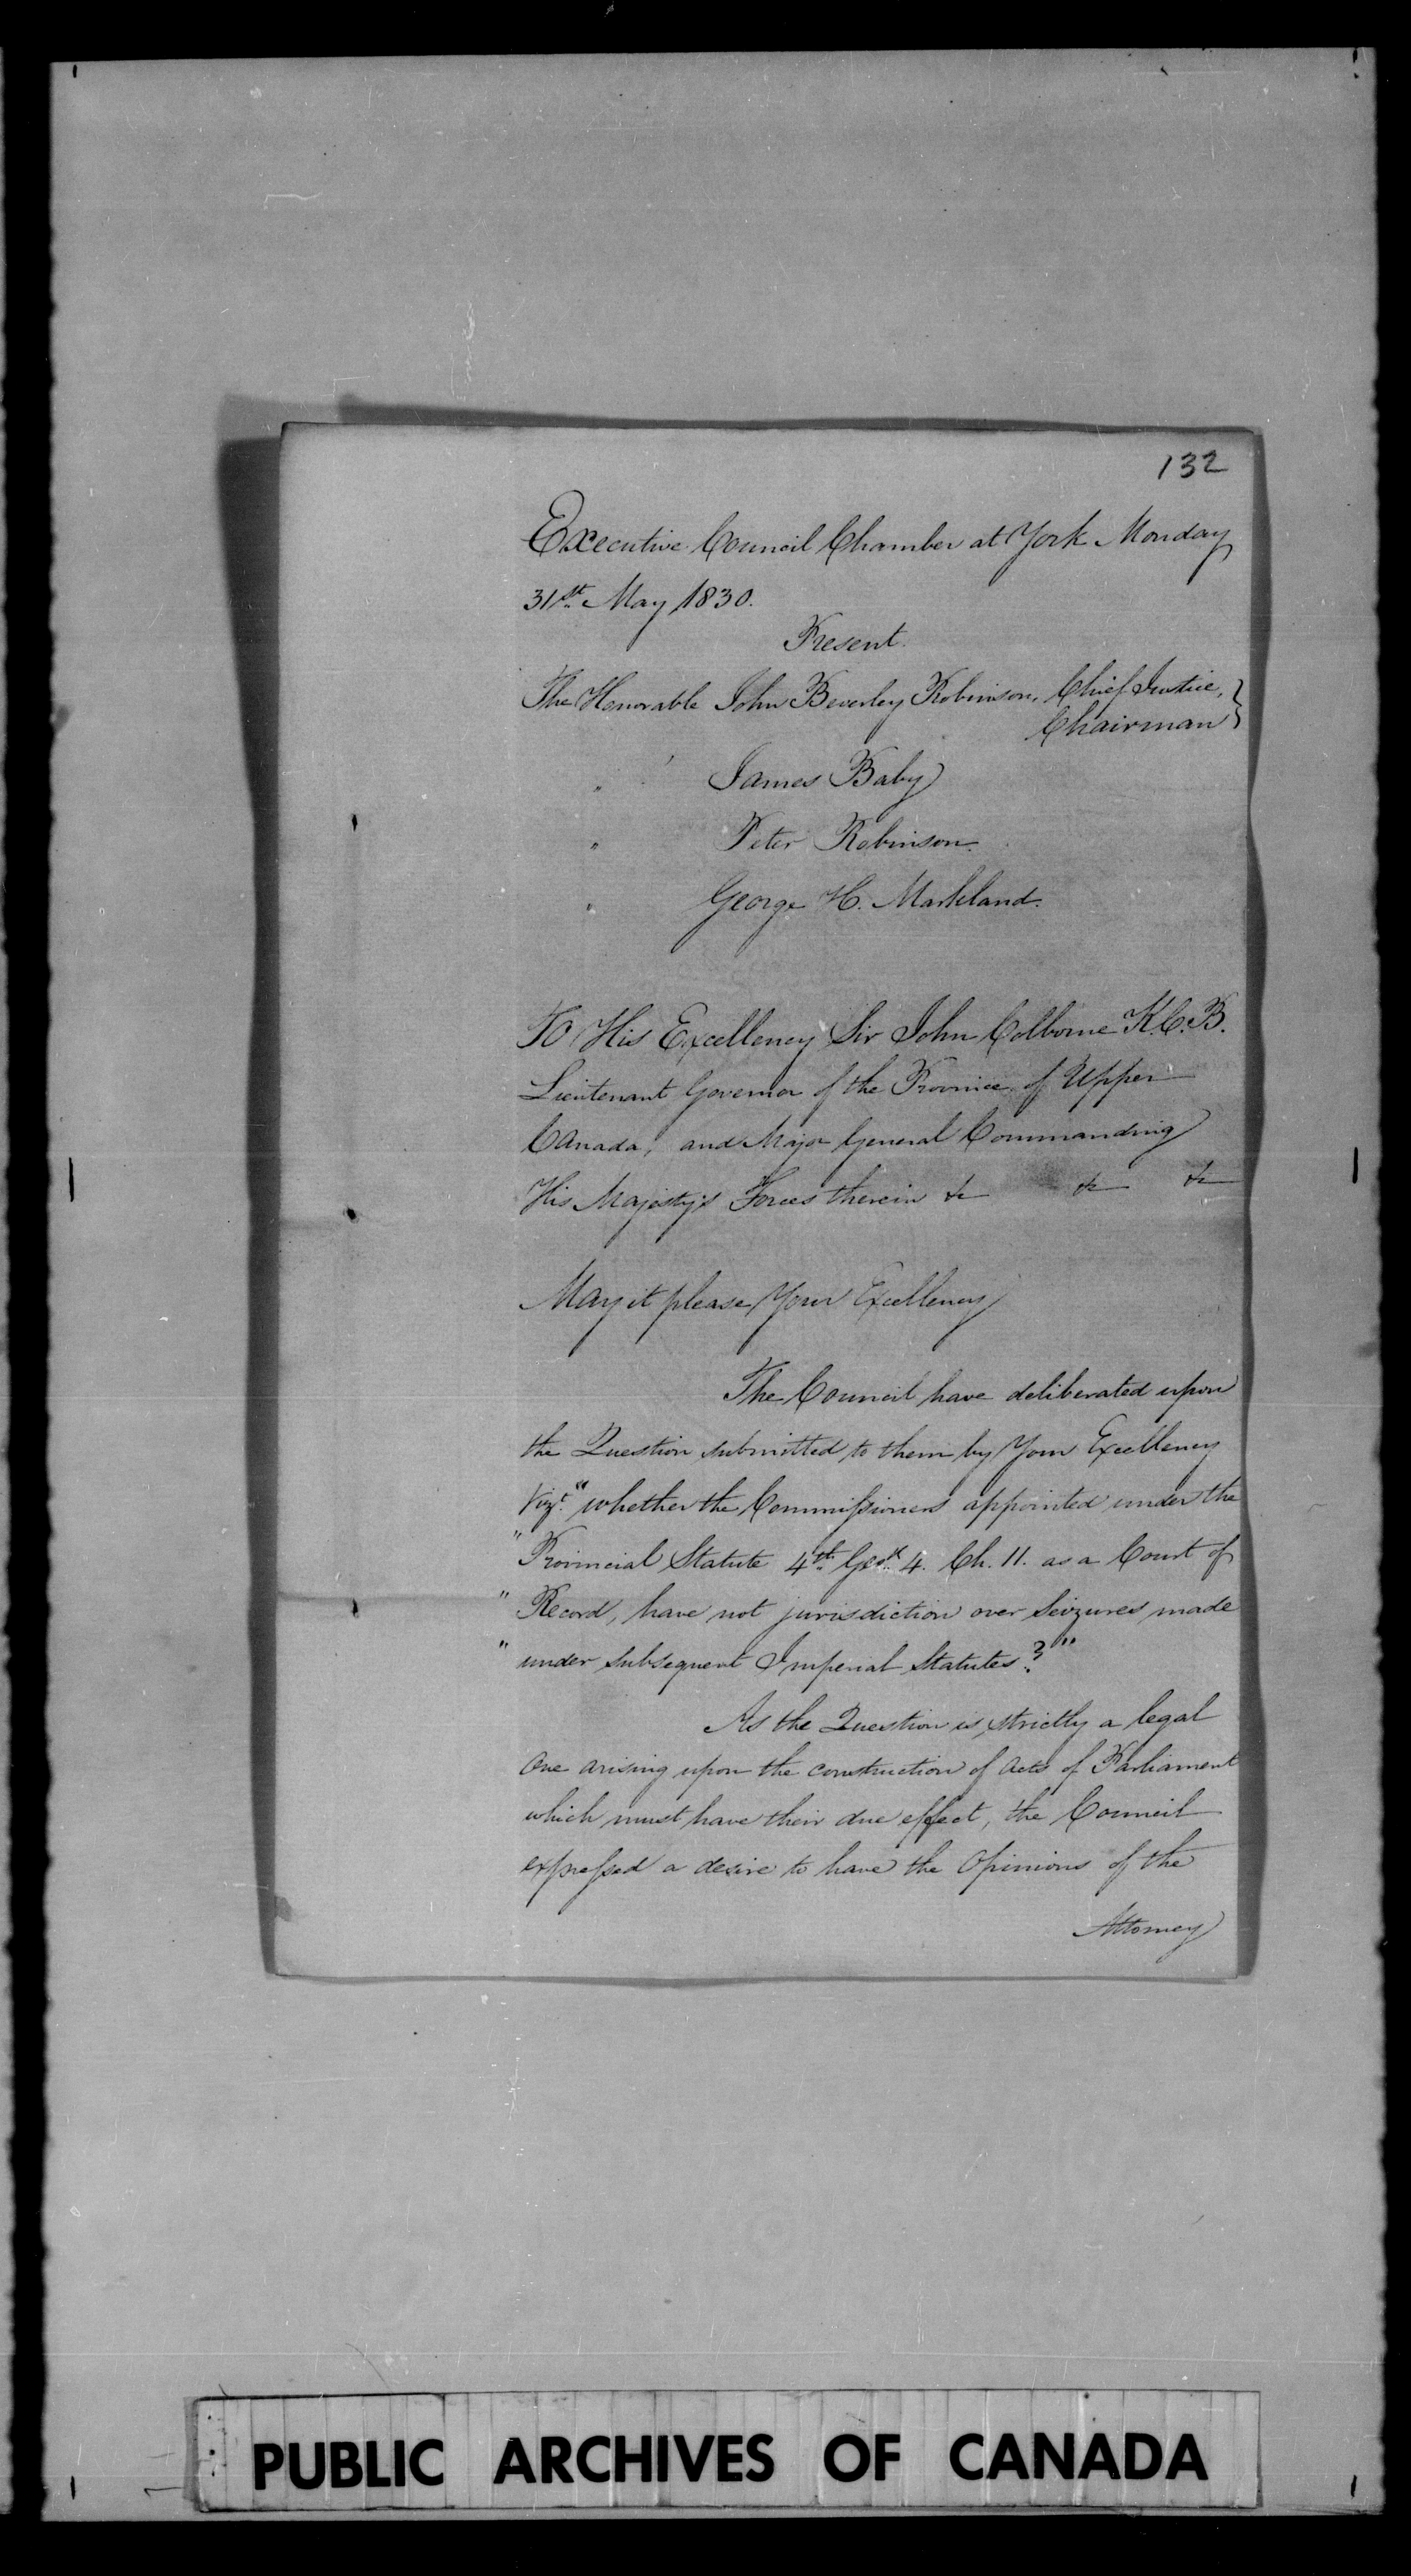 132
Executive Council Chamber at York Monday
31st. May 1830.
Present.
The Honorable John Beverley Robinson, Chief Justice, }
Chairman
" James Baby
" Peter Robinson.
" George H. Markland.
To His Excellency Sir John Colborne K.C.B.
Lieutenant Governor of the Province of Upper
Canada, and Major General Commanding
His Majesty's Forces therein &c &c &c
May it please Your Excellency
The Council have deliberated upon
the Question submitted to them by Your Excellency
Vizt. "whether the Commissioners appointed under the
" Provincial Statute 4th. Geo. 4. Ch. 11. as a Court of
" Record, have not jurisdiction over Seizures made
" under subsequent Imperial Statutes?"
As the Question is strictly a legal
one arising upon the construction of acts of Parliament
which must have their due effect, the Council
expressed a desire to have the Opinions of the
Attorney
PUBLIC ARCHIVES OF CANADA